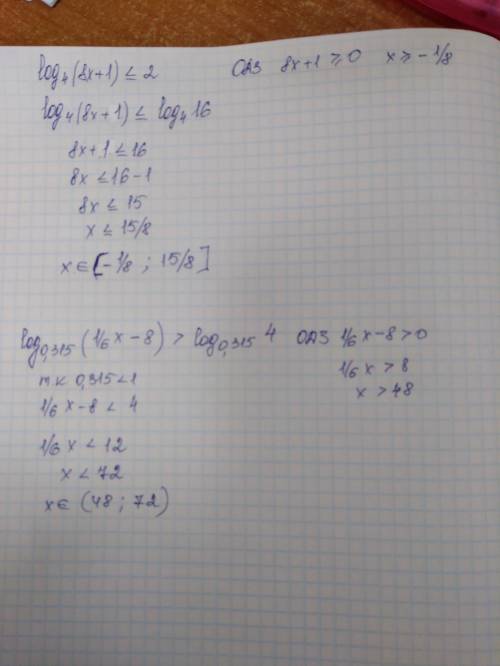 log₄(8x+1) ≤ 2 ОДЗ 8x+1 ≥ 0 x ≥ -1/8
log₄(8x+1) ≤ log₄16
8x+1 ≤ 16
8x ≤ 16-1
8x ≤ 15
x ≤ 15/8
x ∈ [-1/8 ; 15/8]
log₀,₃₁₅(1/6 x-8) > log₀,₃₁₅ 4 ОДЗ 1/6 x-8 > 0
т.к 0,315 < 1 1/6 x > 8
1/6 x-8 < 4 x > 48
1/6 x < 12
x < 72
x ∈ (48 ; 72)